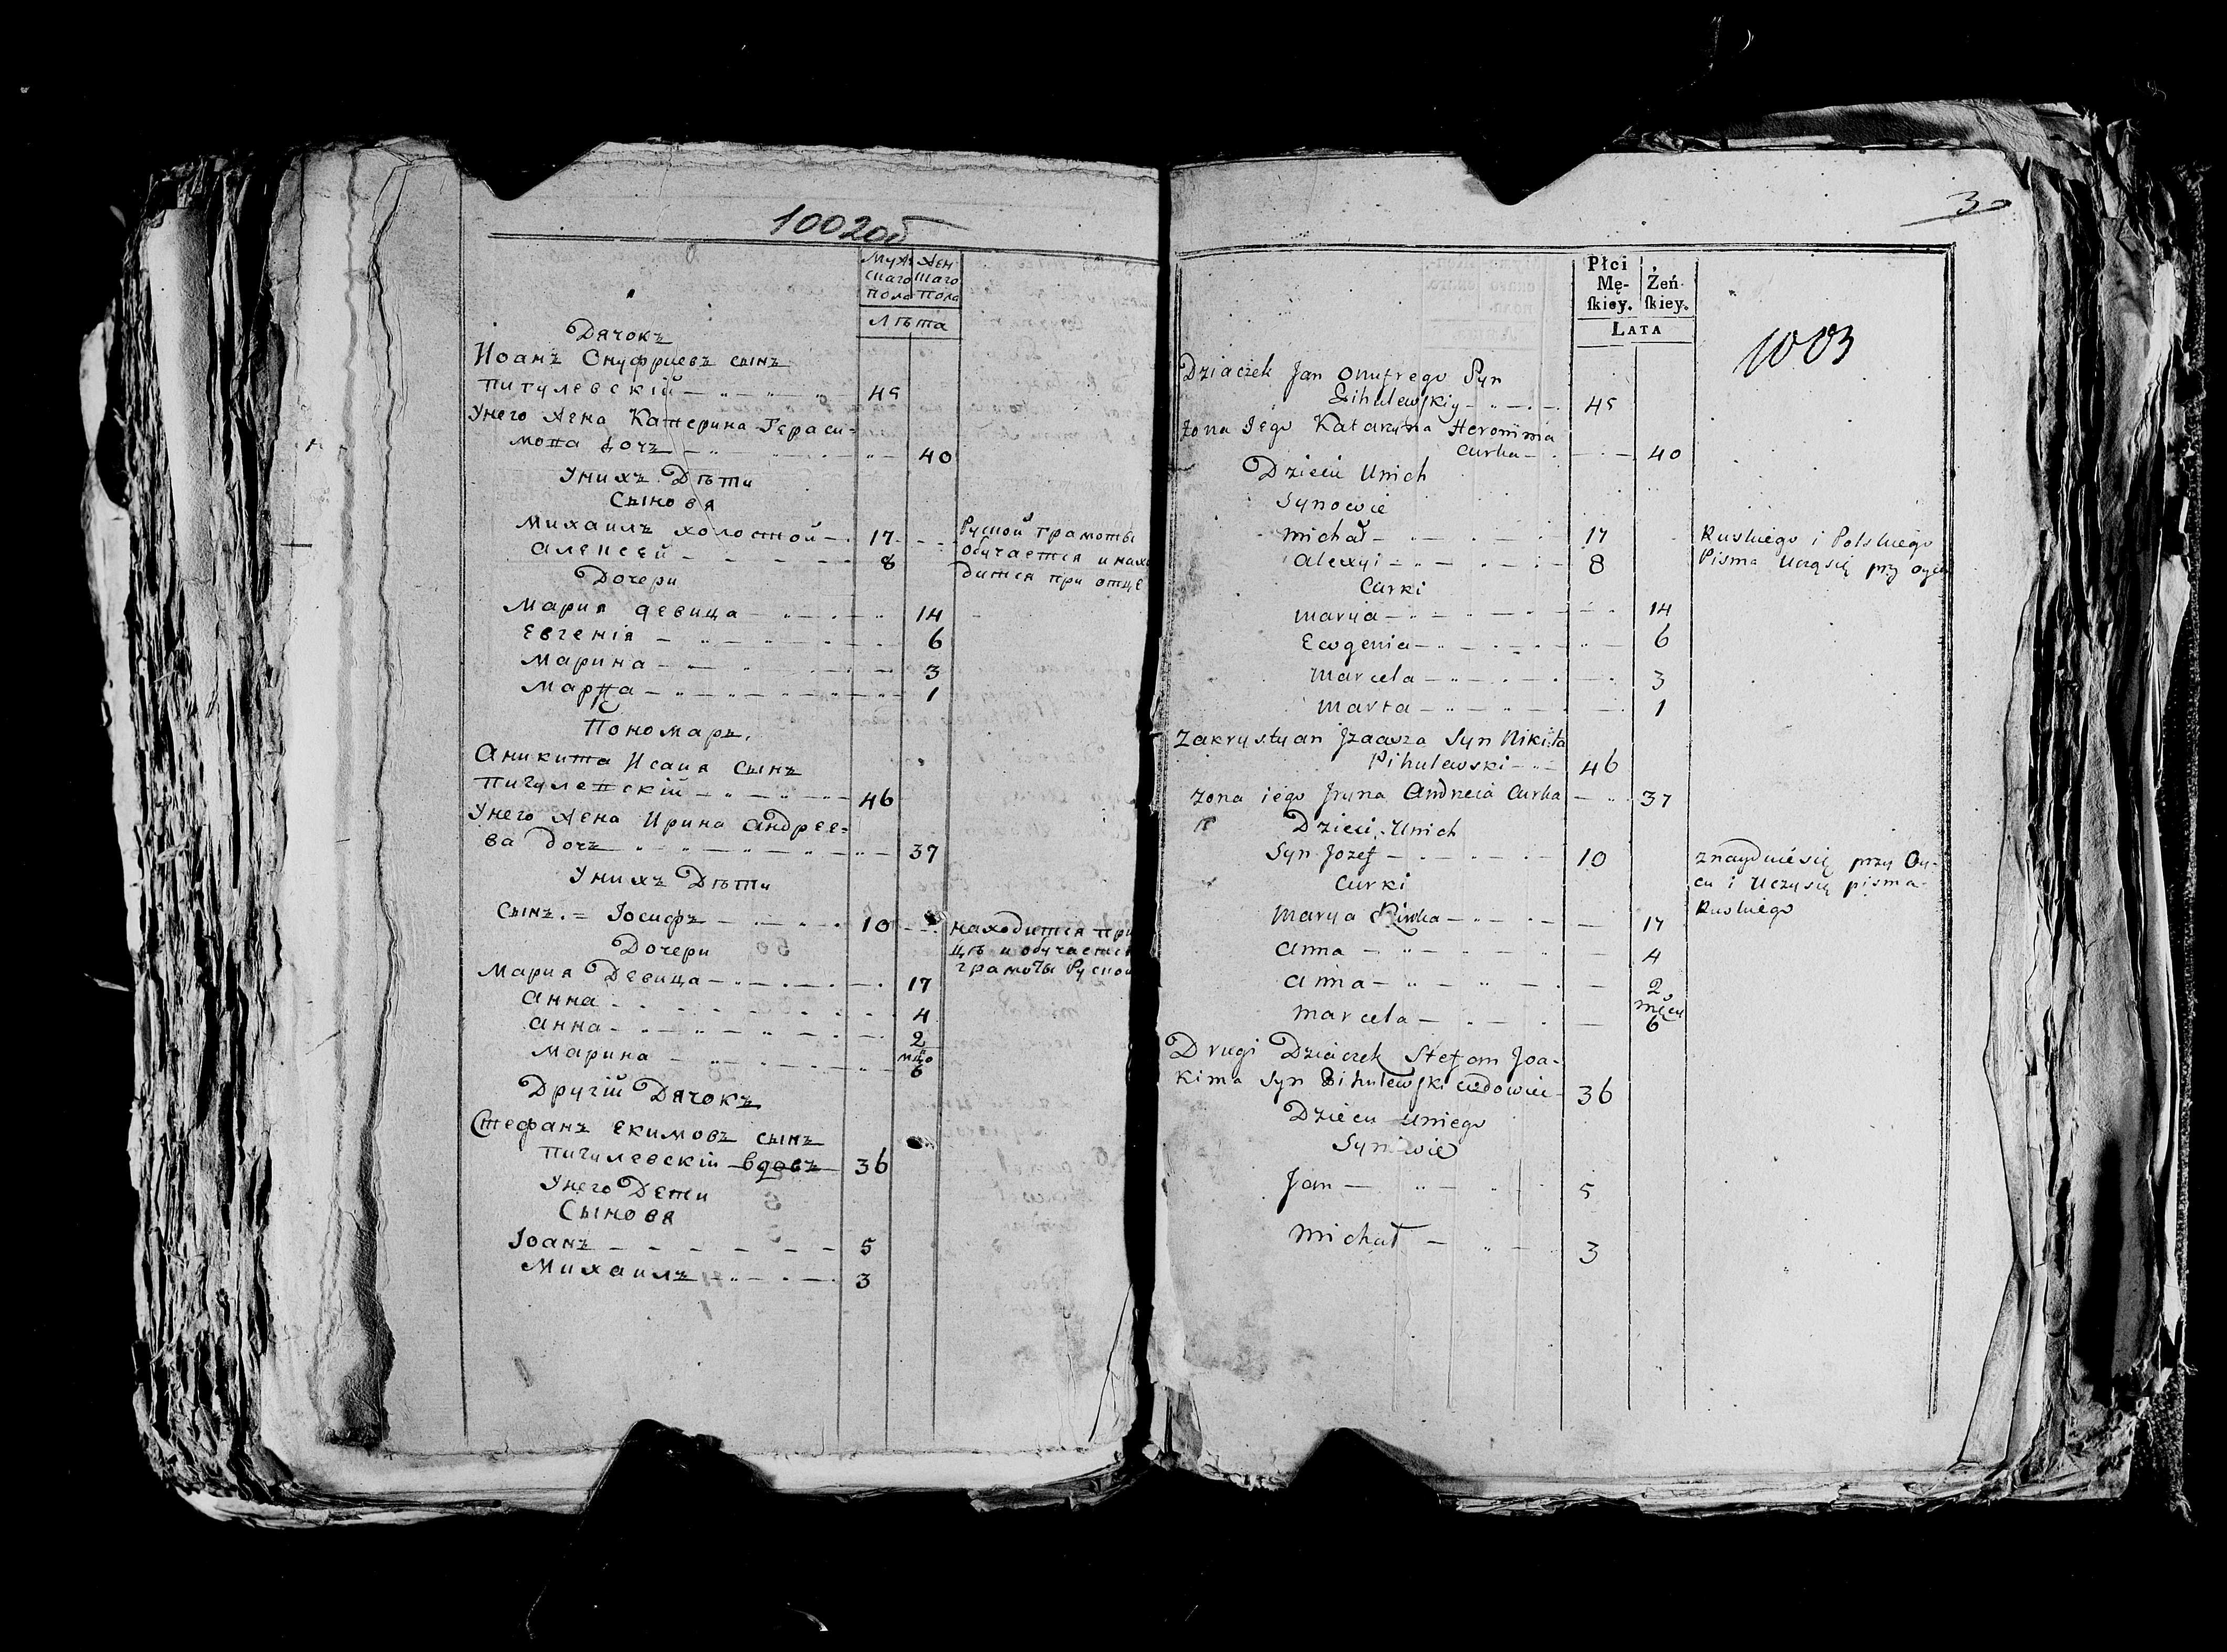 1002об
Муж Жен
скаго шаго
пола Пола
Лѣта
Дячокъ
Иоанъ Онуфриевъ сынъ
Пигулевскій 45
Унего жена Катерина Гераси=
мова дочъ 40
Унихъ Дѣти
Сынова
Михаилъ холостой 17 Руской грамоты
Алексей 8 обучается и нахо
дится при отце
Дочери
Мария девица 14
Евгенія 6
Марина 3
Марѳа 1
Пономаръ.
Аникита Исаия сынъ
Пигулевскій 46
Унего жена Ирина Андрее=
ва дочъ 37
Унихъ Дѣти
Сынъ. = Іосифъ 10 находится при
цѣ и обучается
Дочери грамоты Руской
Мария Девица 17
Анна 4
Анна 2
Марина 6
Другій Дячокъ
Стефанъ Екимовъ сынъ
Пигулевскій вдовъ 36
Унего Дети
Сынова
Іоанъ 5
Михаилъ 3
3
Płci
Mę- Żeń-
ſkiey. ſkiey.
LATA
1003
Dziaczek Jan Onufrego Syn
Pihulewſkiy 45
Żona Jego Kataryna Heronima
Curka 40
Dzieciu Unich
Synowie
Michał 17 Ruskiego i Polskiego
Alexyi 8 Pisma Ucząsię przy oycu
Curki
Marya 14
Ewgenia 6
Marcela 3
Marta 1
Zakrystyan Jzaasza Syn Nikita
Pihulewski 46
Żona iego Jryna Andreia Curka 37
Dzieci Unich
Syn Jozef 10 znayduiesię przy Oy-
cu i Uczysię pisma
Curki Ruskiego
Marya 17
Anna 4
Anna 2
Marcela 6
Drugi Dziaczek Stefan Joa-
kima Syn Pihulewſki wdowiec 36
Dzieci uniego
Synowie
Jan 5
Michał 3